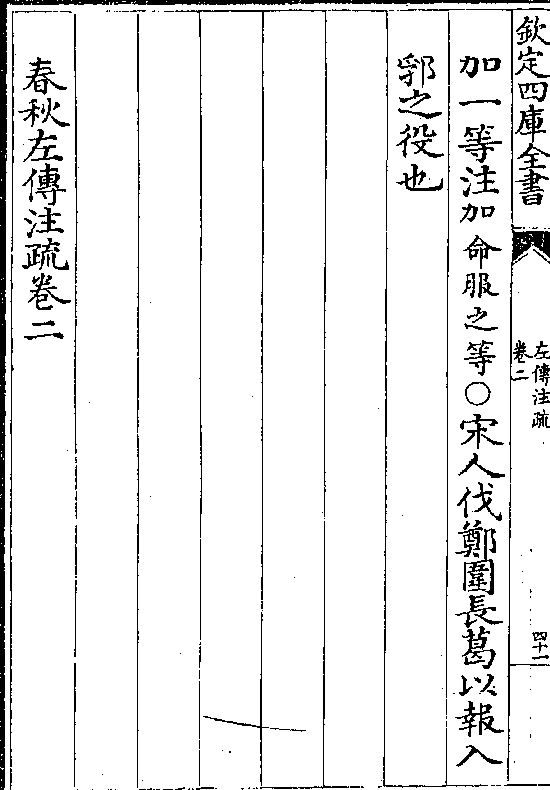 欽定四庫全書
左傳注疏
卷二
四十一
加一等注加命服之等○宋人伐鄭圍長葛以報入
郛之役也
春秋左傳注疏卷二